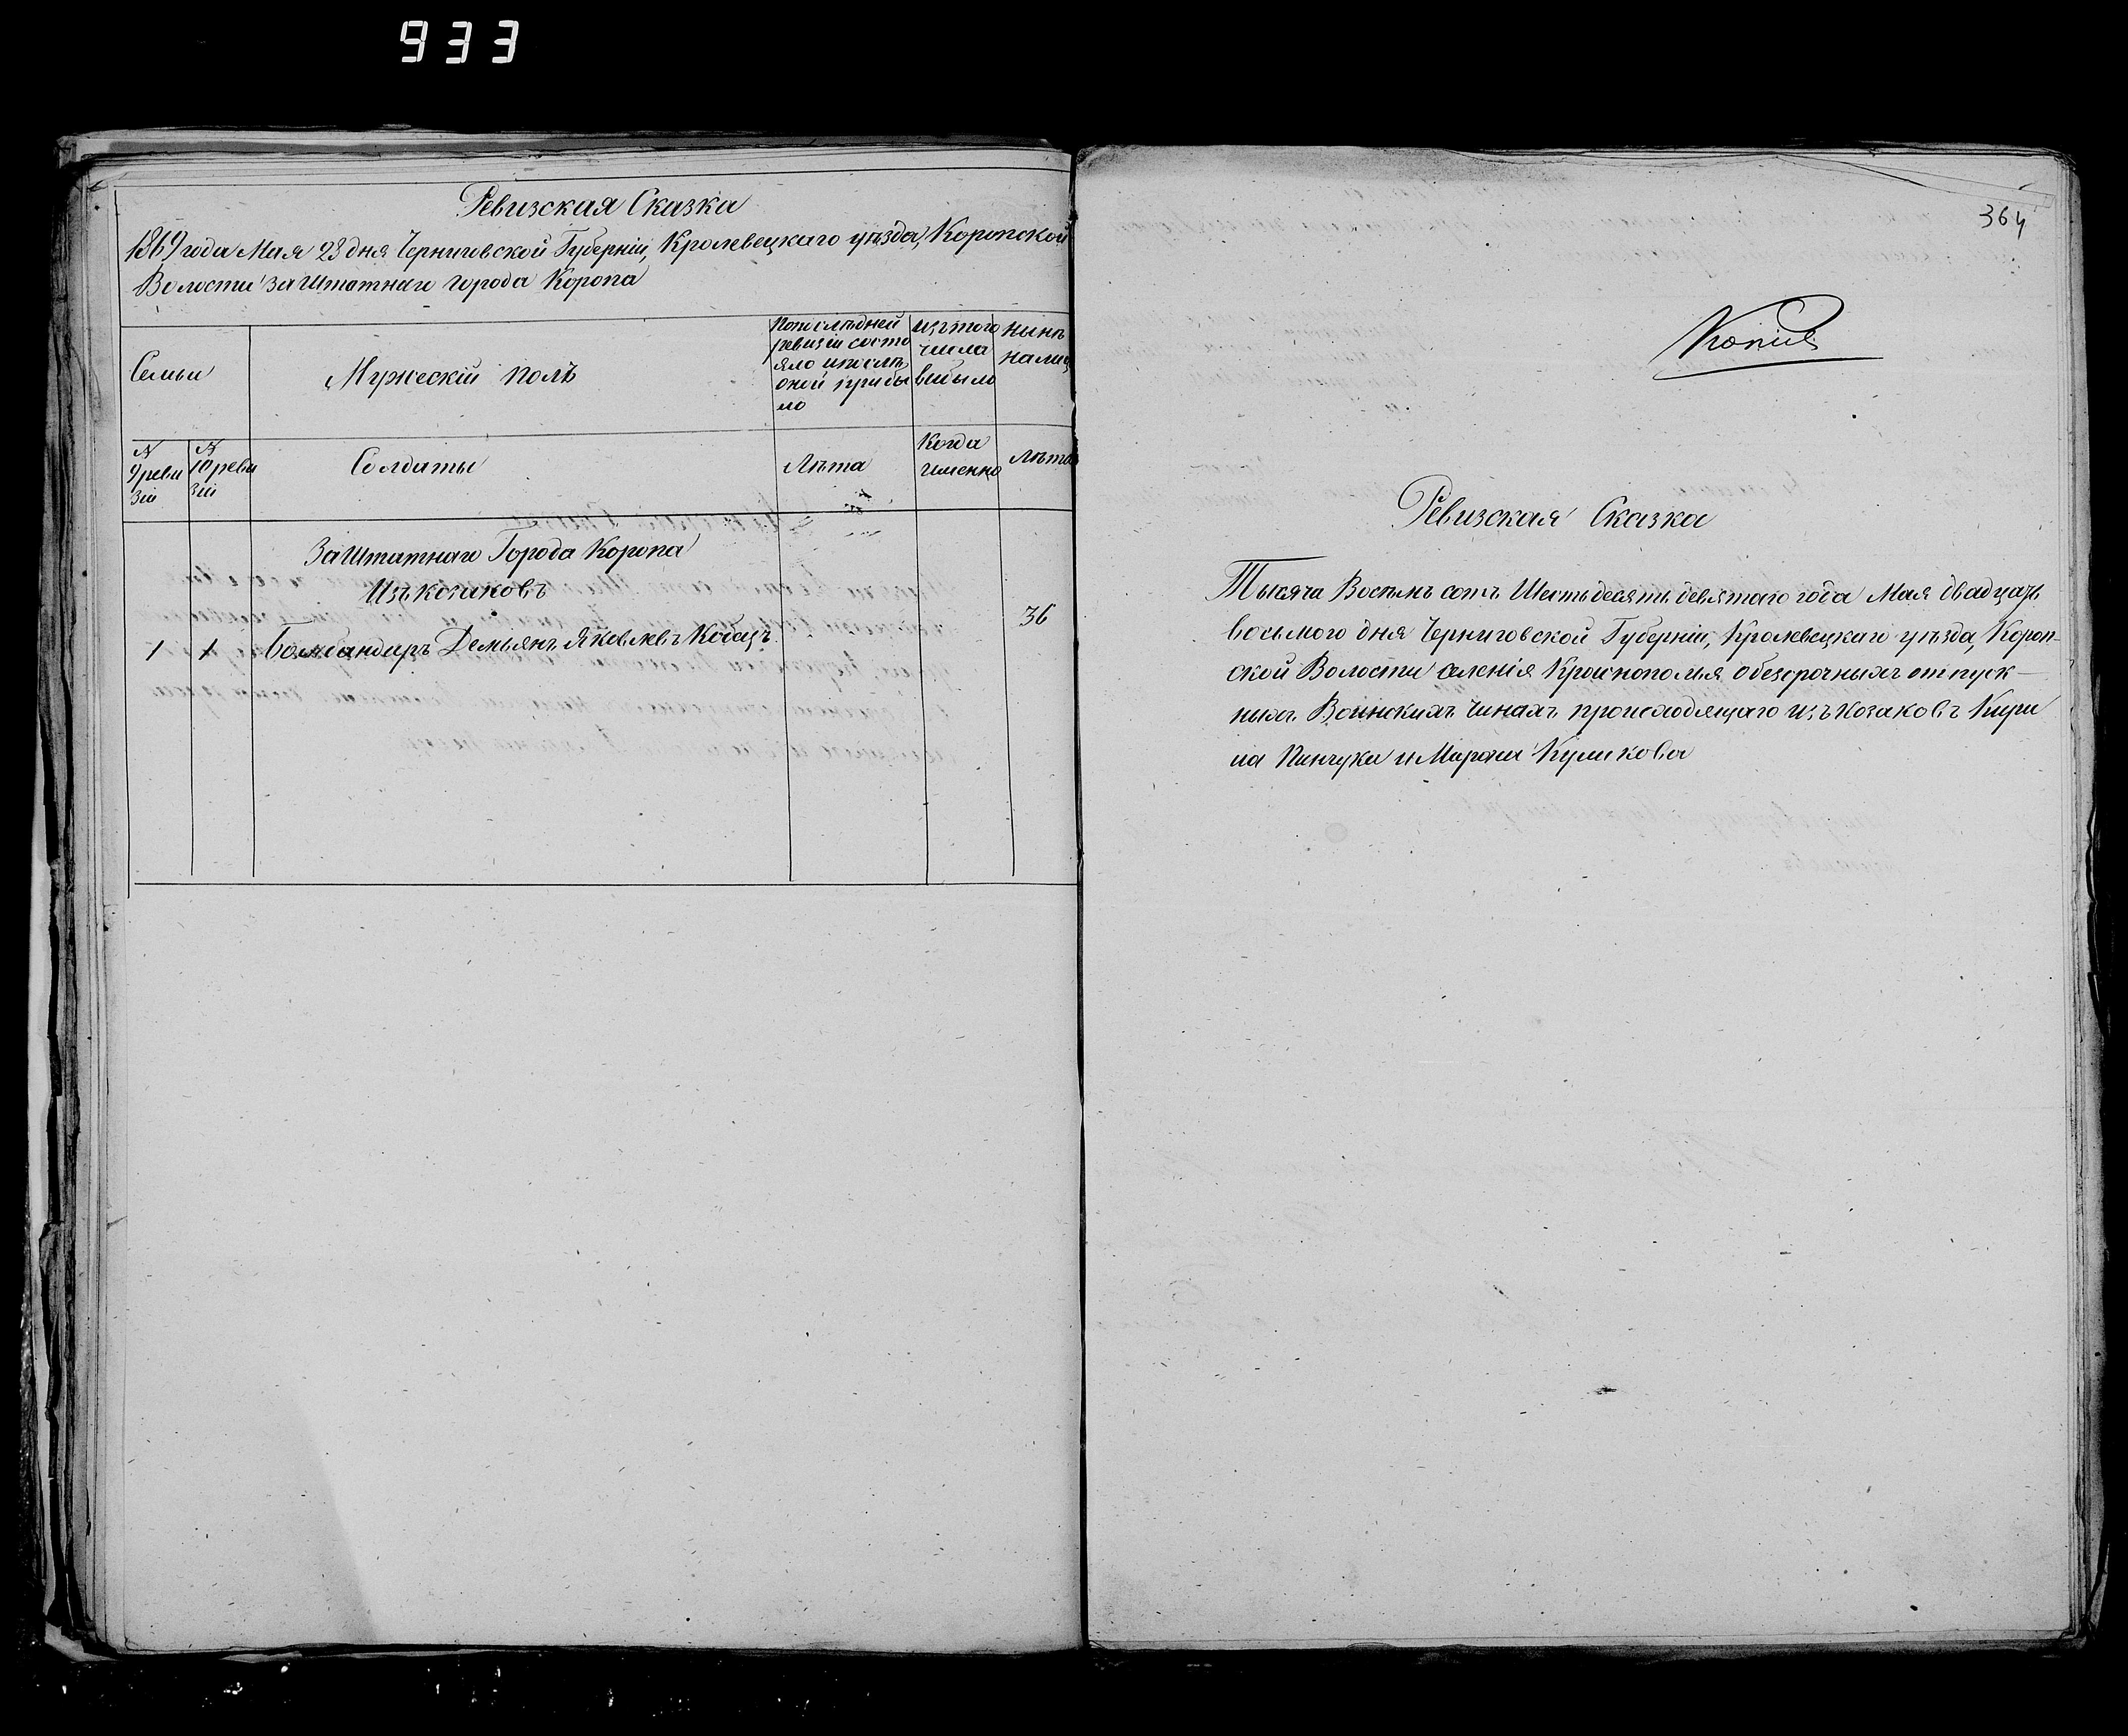 933
Ревизская Сказка
1869 года Мая 28 дня Черниговской Губерніи, Кролевецкаго уѣзда, Коропской
Волости заштатнаго города Коропа
Семьи
Мужескій полъ
По последней
ревизіи состо
яло и послѣ
оной прибы
ло
изъ того
числа
выбыло
нинѣ
налиц
N
9 реви
зіи
N
10 реви
зіи
Солдаты
Лѣта
Когда
именно
Лѣта
Заштатнаго Города Коропа
Изъ козаковъ
1 1 Бомбандиръ Демьянъ Яковлевъ Кобецъ 36
364
Копія
Ревизская Сказка
Тысяча Восемь сотъ Шестьдесятъ девятаго года Мая двадцать
восьмого дня Черниговской Губерніи, Кролевецкаго уѣзда, Короп-
ской Волости селенія Краснополья о безсрочныхъ отпуск-
ныхъ Воинскихъ Чинахъ происходящаго изъ Козаковъ Кири
ла Пинчука и Марона Куликова